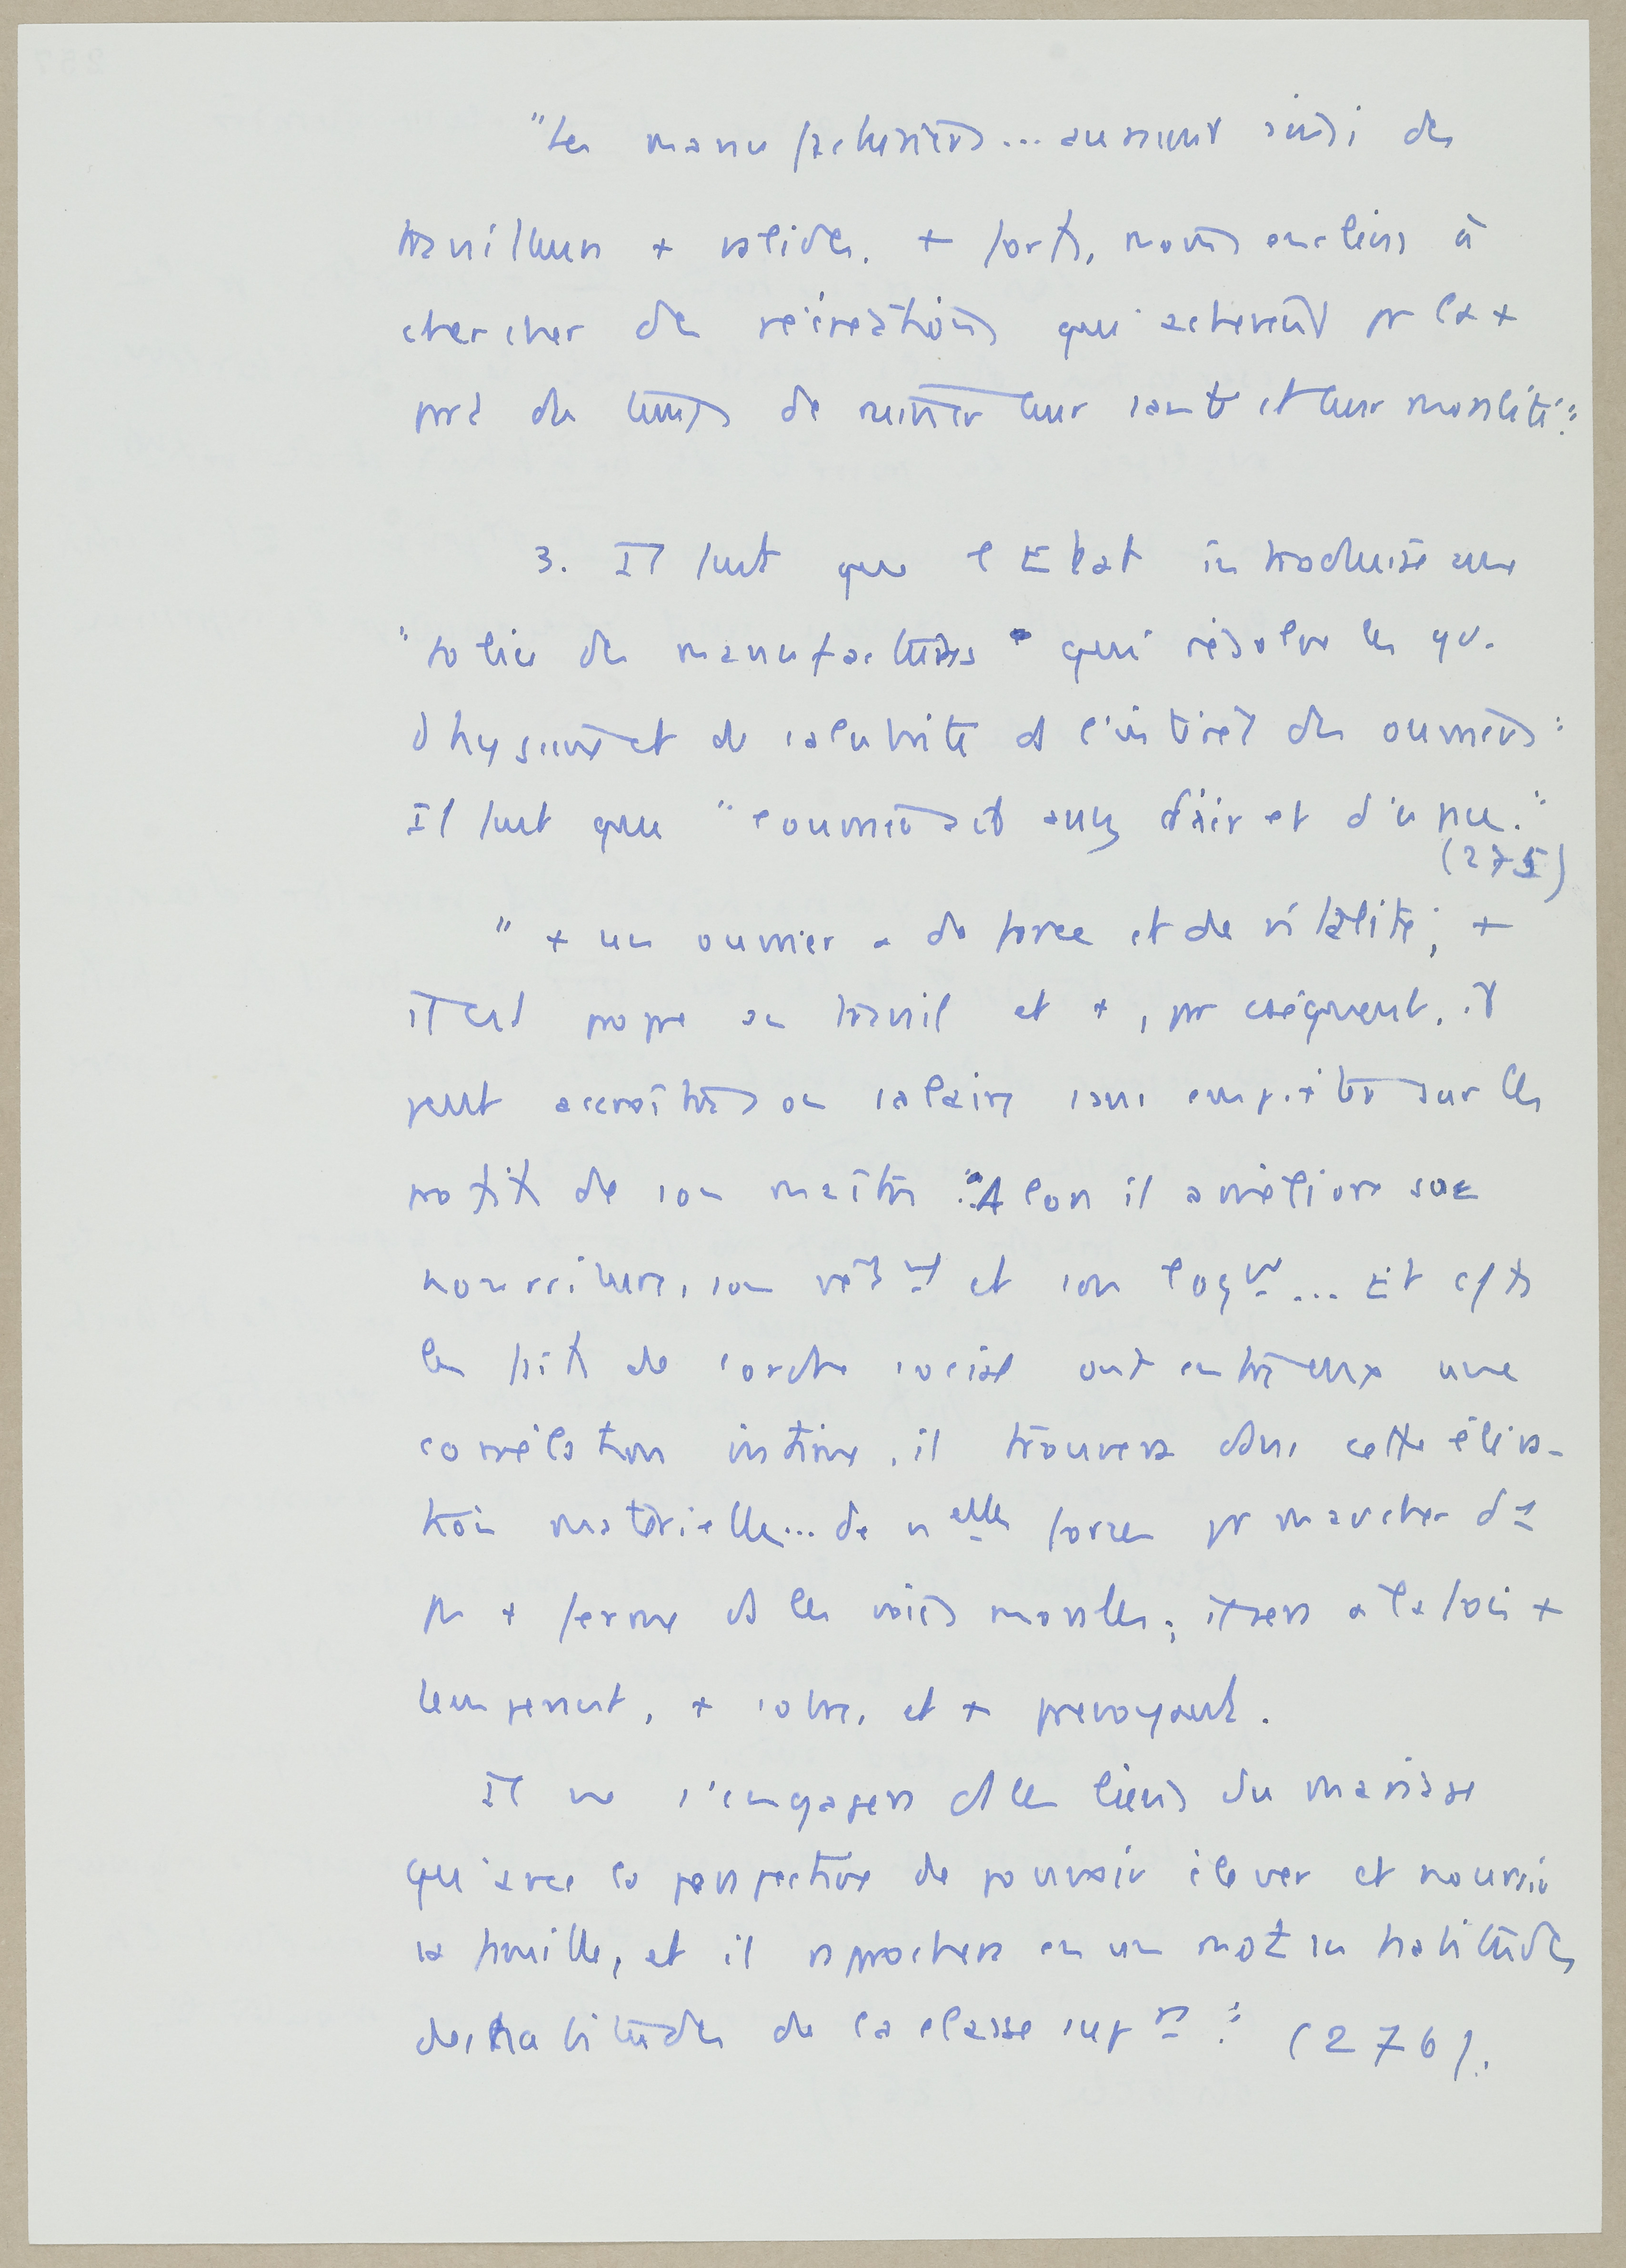 "Les manufacturiers... auraient ainsi des
travailleurs + valides, + forts, moins enclins à
chercher des récréations qui achèvent pr la +
part du temps de ruiner leur santé et leur moralité."
3. Il faut que l'Etat introduise une
"police des manufactures" qui résolve les qu.
d'hygiène et de salubrité ds l'intérêt des ouvriers :
Il faut que "l'ouvrier ait assez d'air et d'espace."
(275)
" + un ouvrier a de force et de vitalité, +
il est propre au travail et +, par conséquent, il
peut accroître son salaire sans empiéter sur les
profits de son maître. "Alors il améliore sa
nourriture, son vêtt et son logt... Et cs ts
les faits de l'ordre social ont entre eux une
corrélation intime, il trouvera dans cette éléva-
tion matérielle... de nelles forces pr marcher d'1
pas + ferme ds les voies morales ; il sera à la fois +
tempérant, + sobre, et + prévoyant.
Il ne s'engagera ds les liens du mariage
qu'avec la perspective de pouvoir élever et nourrir
sa famille, et il rapprochera en un mot ses habitudes
des habitudes de la classe supre." (276).